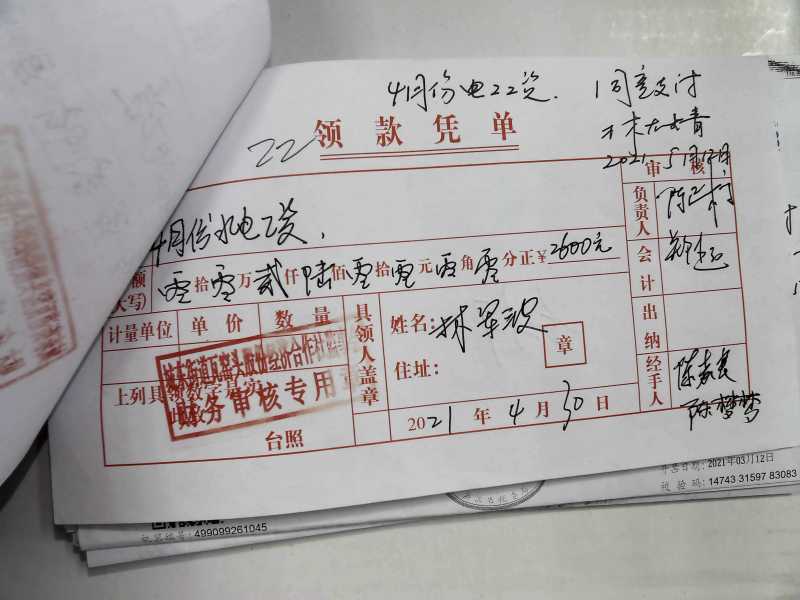 4月份电工资. 同意支付
22 领款凭单
2021 5月17日
审核
4月份水电工资,
额 零拾零万贰仟陆佰零拾零元零角零分正¥2600元
大写)
负责人
会计
计量单位 单价 数量
具领人盖章
姓名: 林军波
章
住址:
出纳
股份经济合作社
财务审核专用章
上列具领数
台照
2021年4月30日
经手人
陈梦梦
开票日期: 2021年03月12日
校验码: 14743 31597 83083
机器编号: 499099261045